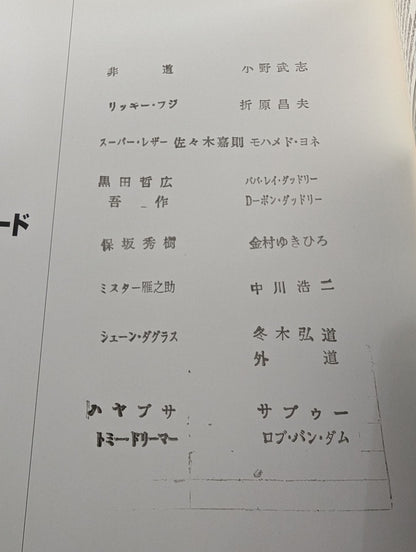 ード
非 道 小野武志
リッキー・フジ 折原昌夫
スーパー・レザー 佐々木嘉則 モハメド・ヨネ
黒田哲広 ババ・レイ・ダッドリー
吾 作 D-ボン・ダッドリー
保坂秀樹 金村ゆきひろ
ミスター雁之助 中川浩二
シェーン・ダグラス 冬木弘道
外 道
ハヤブサ サブゥー
トミー・ドリーマー ロブ・バン・ダム